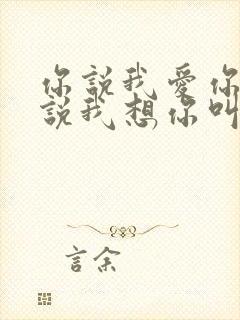 你說我愛你
說我想你叫
言余